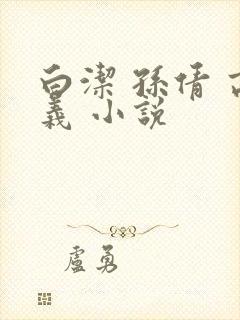 白潔 孫倩 高
義 小說
盧勇